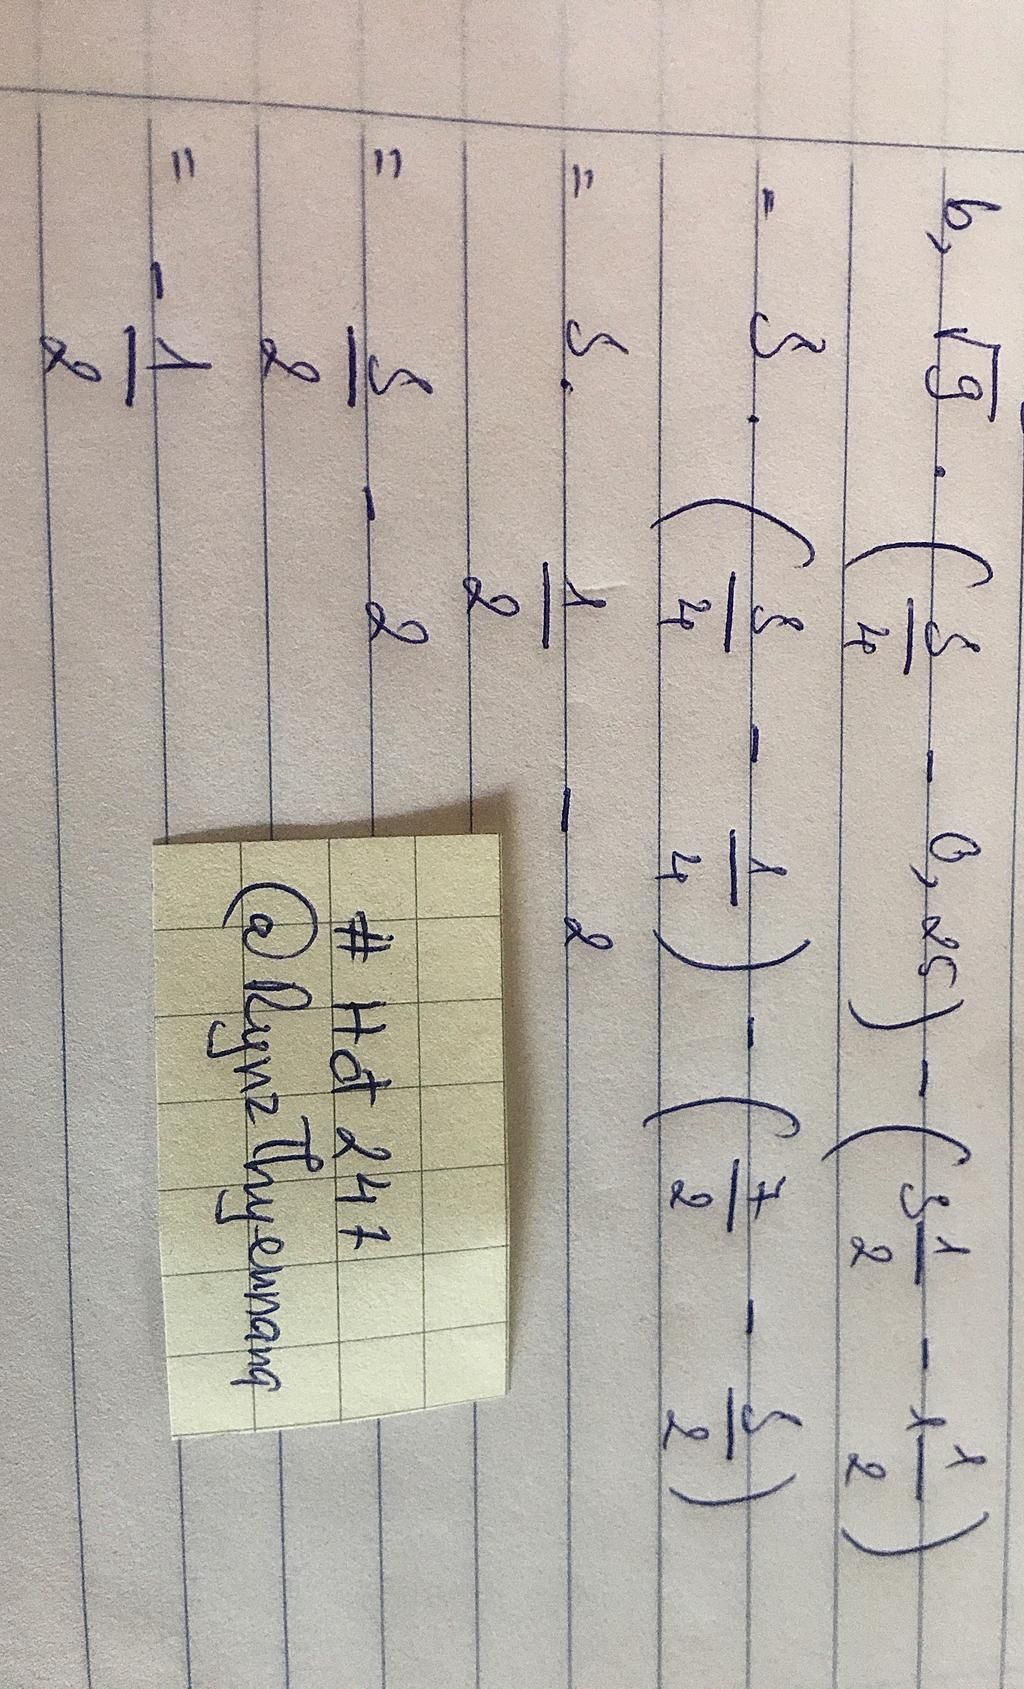 b, √9 . (3/4 - 0,25) - (3 1/2 - 1 1/2)
= 3 . (3/4 - 1/4) - (7/2 - 3/2)
= 3 . 1/2 - 2
= 3/2 - 2
= -1/2
# Hđ 247
@RynzThyennang